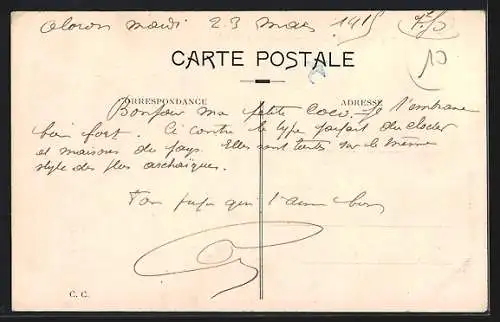 oloron mardi 23 mars 1915
CARTE POSTALE
CORRESPONDANCE
ADRESSE
10
Bonjour ma petite Coco. Je t'embrasse
bien fort. Ci contre le type parfait du clocher
et maisons du pays. Elles sont toutes sur le même
style des plus archaïques.
Ton papa qui t'aime bien
C. C.